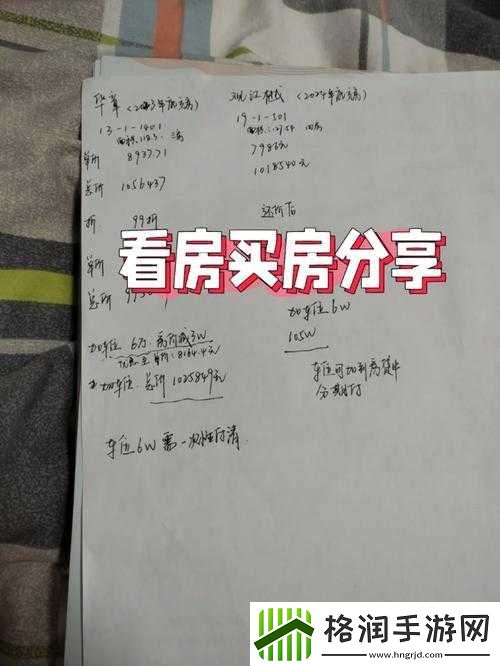 华章（2023年底交房）
13-1-1401
面积：118.3 三房
单价 8937.71
总价 1056437
折 99折
单价
总价
加车位 6万 房价减3W
加车位 总价 1025849元
车位6W需一次性付清
观江樾（2024年底交房）
19-1-501
面积：127.54 四房
7986元
1018540元
还价后
看房买房分享
加车位6W
105W
车位可加到房贷中
分期付
格润手游网
www.hngrjd.com